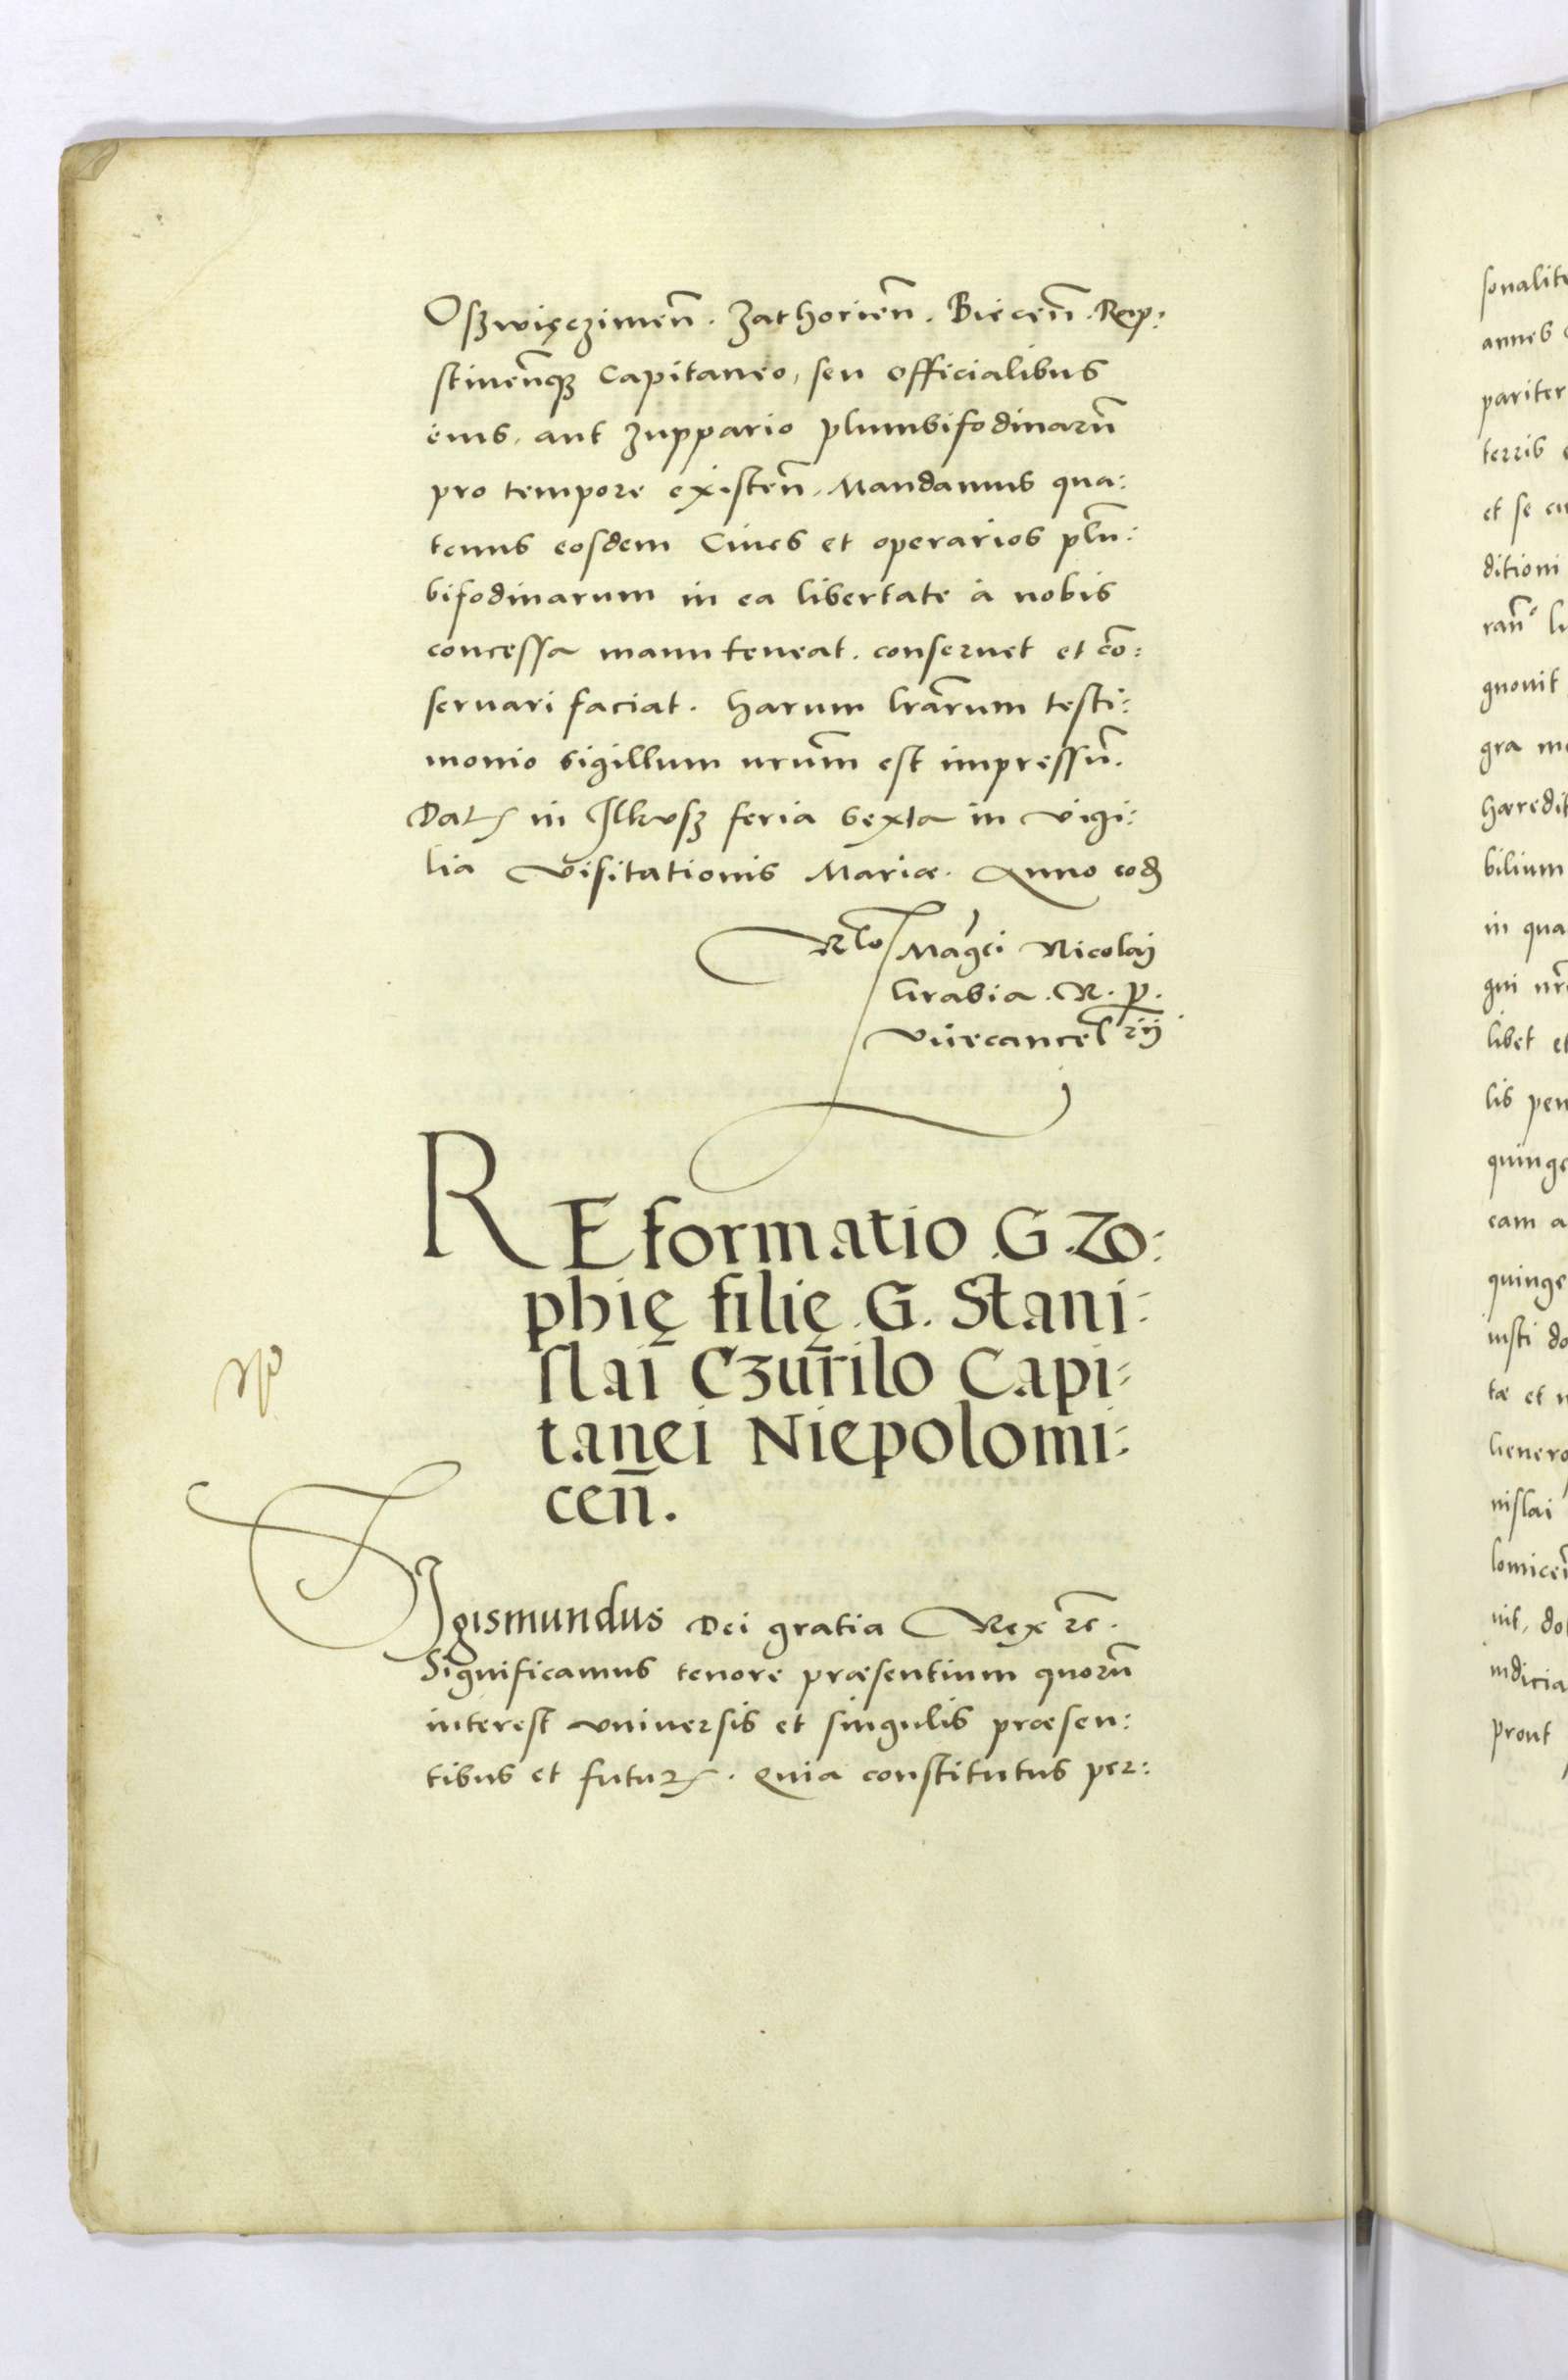 Oszwięczimeñ. Zathorieñ. Bieceñ. Rap:
stineñqꝫ Capitaneo, seu officialibus
eius, aut Zuppario plumbifodinarũ
pro tempore existeñ, Mandamus qua:
tenus eosdem Ciues et operarios plũ:
bifodinarum in ea libertate à nobis
concessa manuteneat. conseruet et cõ:
seruari faciat. Harum lrarum testi:
monio sigillum nrum est impressũ.
Dat in Ilkusz feria sexta in vigi:
lia Visitationis Mariæ. Anno eod
Rlo Magci Nicolaij
Grabia. R. p.
Vicecancelrij
REformatio .G. Zo:
phię filię .G. Stani:
slai Czurilo Capi:
tanei Niepolomi:
ceñ.
SIgismundus Dei gratia Rex ꝛc.
Significamus tenore præsentium quorũ
interest vniuersis et singulis præsen:
tibus et futur. Quia constitutus per:
sonalite
pariter
terris
et se cu
ditioni
rañ
gnouit
gra
hæredit
bilium
in qua
qui nr
libet et
lis pen
quinge
eam a
quinge
iusti do
tæ et
Genero
nislai
lomiceñ
uit, do
iudicia
prout